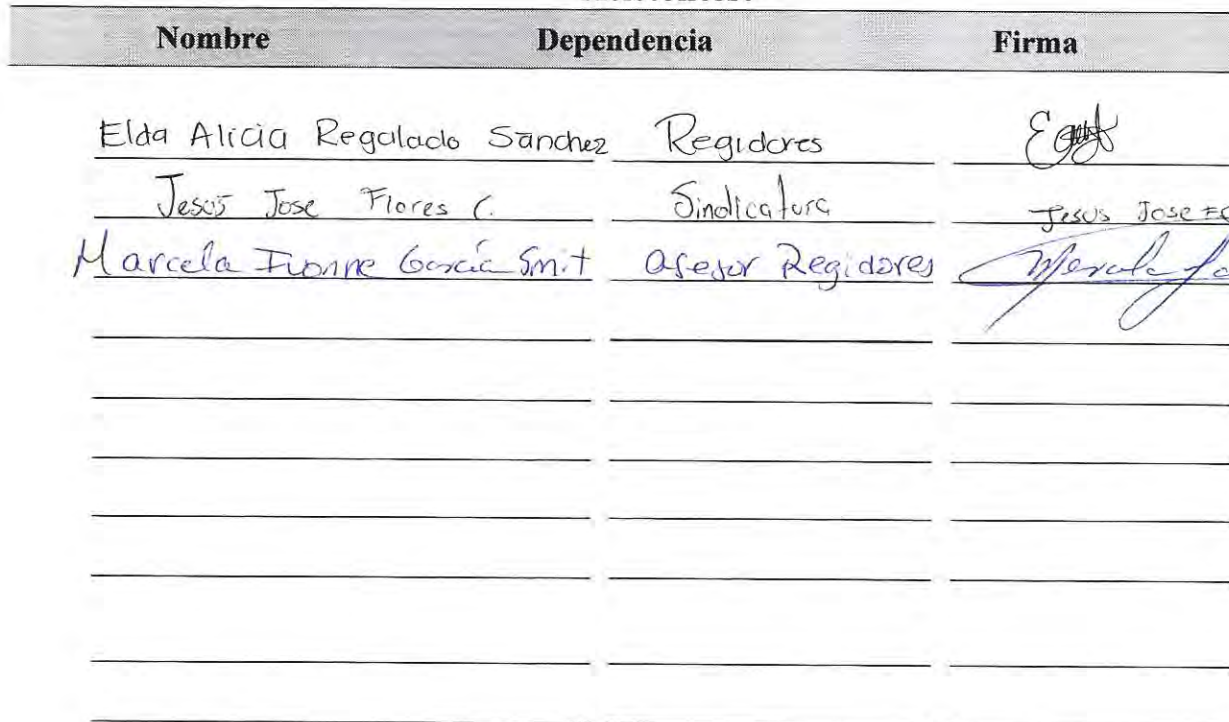 Nombre Dependencia Firma
Elda Alicia Regalado Sánchez Regidores
Jesús Jose Flores C. Sindicatura Jesus Jose
Marcela Ivonne García Smit asesor Regidores